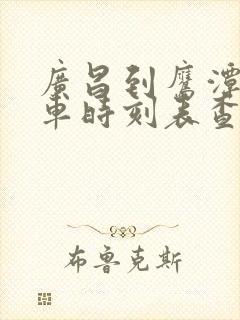 廣昌到鷹潭
車時刻表查
布魯克斯